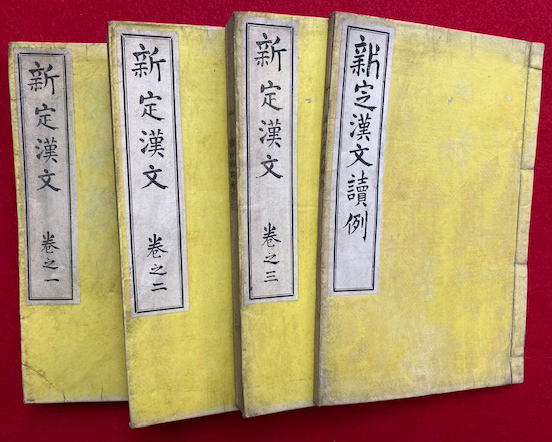 新定漢文 卷之一
新定漢文 卷之二
新定漢文 卷之三
新定漢文讀例